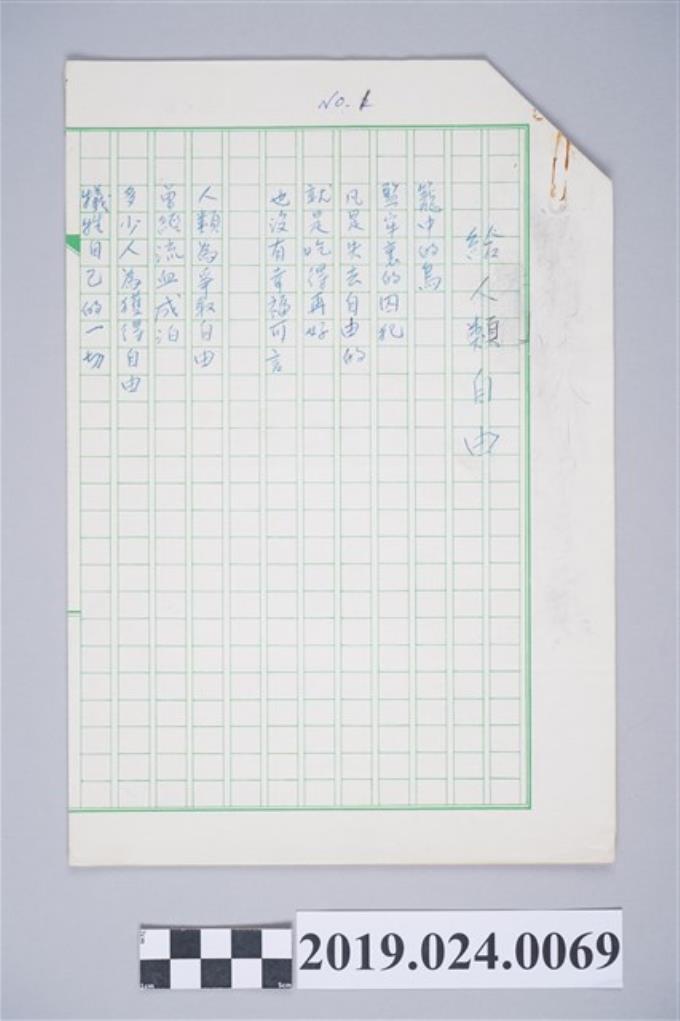 No. 1
給人類自由
籠中的鳥
監牢裏的囚犯
凡是失去自由的
就是吃得再好
也沒有幸福可言
人類為爭取自由
曾經流血成泊
多少人為獲得自由
犧牲自己的一切
2019.024.0069